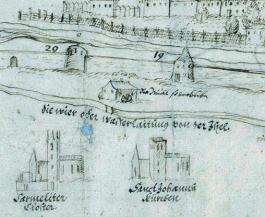 29 19
die wier oder wasserlaittung von der Isel.
Carmeliter
Closter.
Sanct Johanns
kirchen